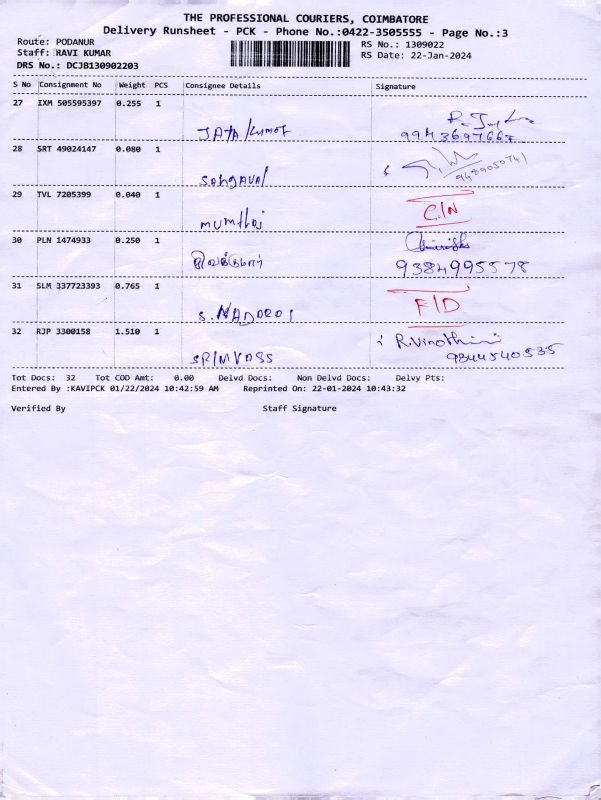 THE PROFESSIONAL COURIERS, COIMBATORE
Delivery Runsheet - PCK - Phone No.:0422-3505555 - Page No.:3
Route: PODANUR
RS No.: 1309022
Staff: RAVI KUMAR
RS Date: 22-Jan-2024
DRS No.: DCJB130902203
S No Consignment No Weight PCS Consignee Details Signature
27 IXM 505595397 0.255 1
28 SRT 49024147 0.080 1
29 TVL 7205399 0.040 1
C/N
mumthaj
30 PLN 1474933 0.250 1
9384995578
31 SLM 337723393 0.765 1
F/D
32 RJP 3300158 1.510 1
R.Vinothini
9344540535
Tot Docs: 32 Tot COD Amt: 0.00 Delvd Docs: Non Delvd Docs: Delvy Pts:
Entered By :KAVIPCK 01/22/2024 10:42:59 AM Reprinted On: 22-01-2024 10:43:32
Verified By Staff Signature